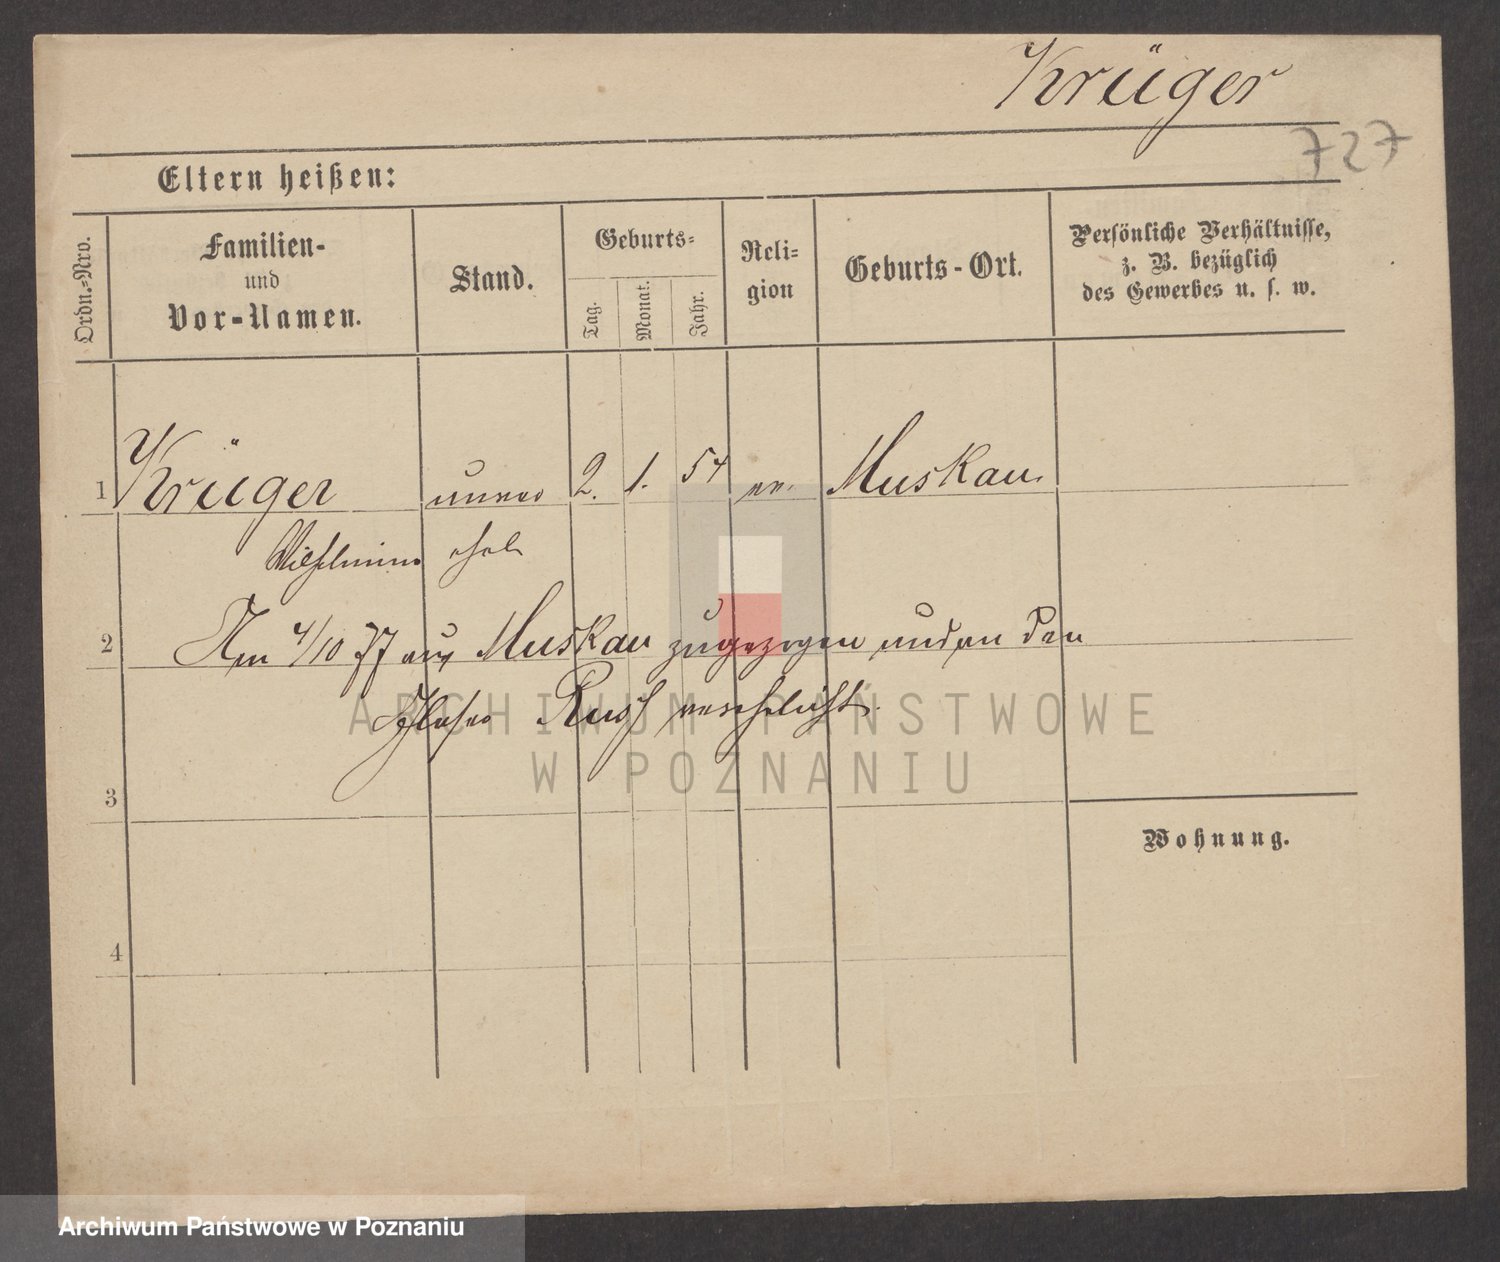 Krüger
727
Eltern heißen:
Ordn.-Nro.
Familien-
und
Vor-Namen.
Stand.
Geburts-
Tag.
Monat.
Jahr.
Reli-
gion
Geburts-Ort.
Persönliche Verhältnisse,
z. B. bezüglich
des Gewerbes u. s. w.
1 Krüger unver 2. 1. 54 ev. Muskau.
Wilhelmine ehel
2 Am 4/10 77 aus Muskau zugezogen und an den
Russ verehelicht.
ARCHIWUM PAŃSTWOWE
W POZNANIU
3
Wohnung.
4
Archiwum Państwowe w Poznaniu